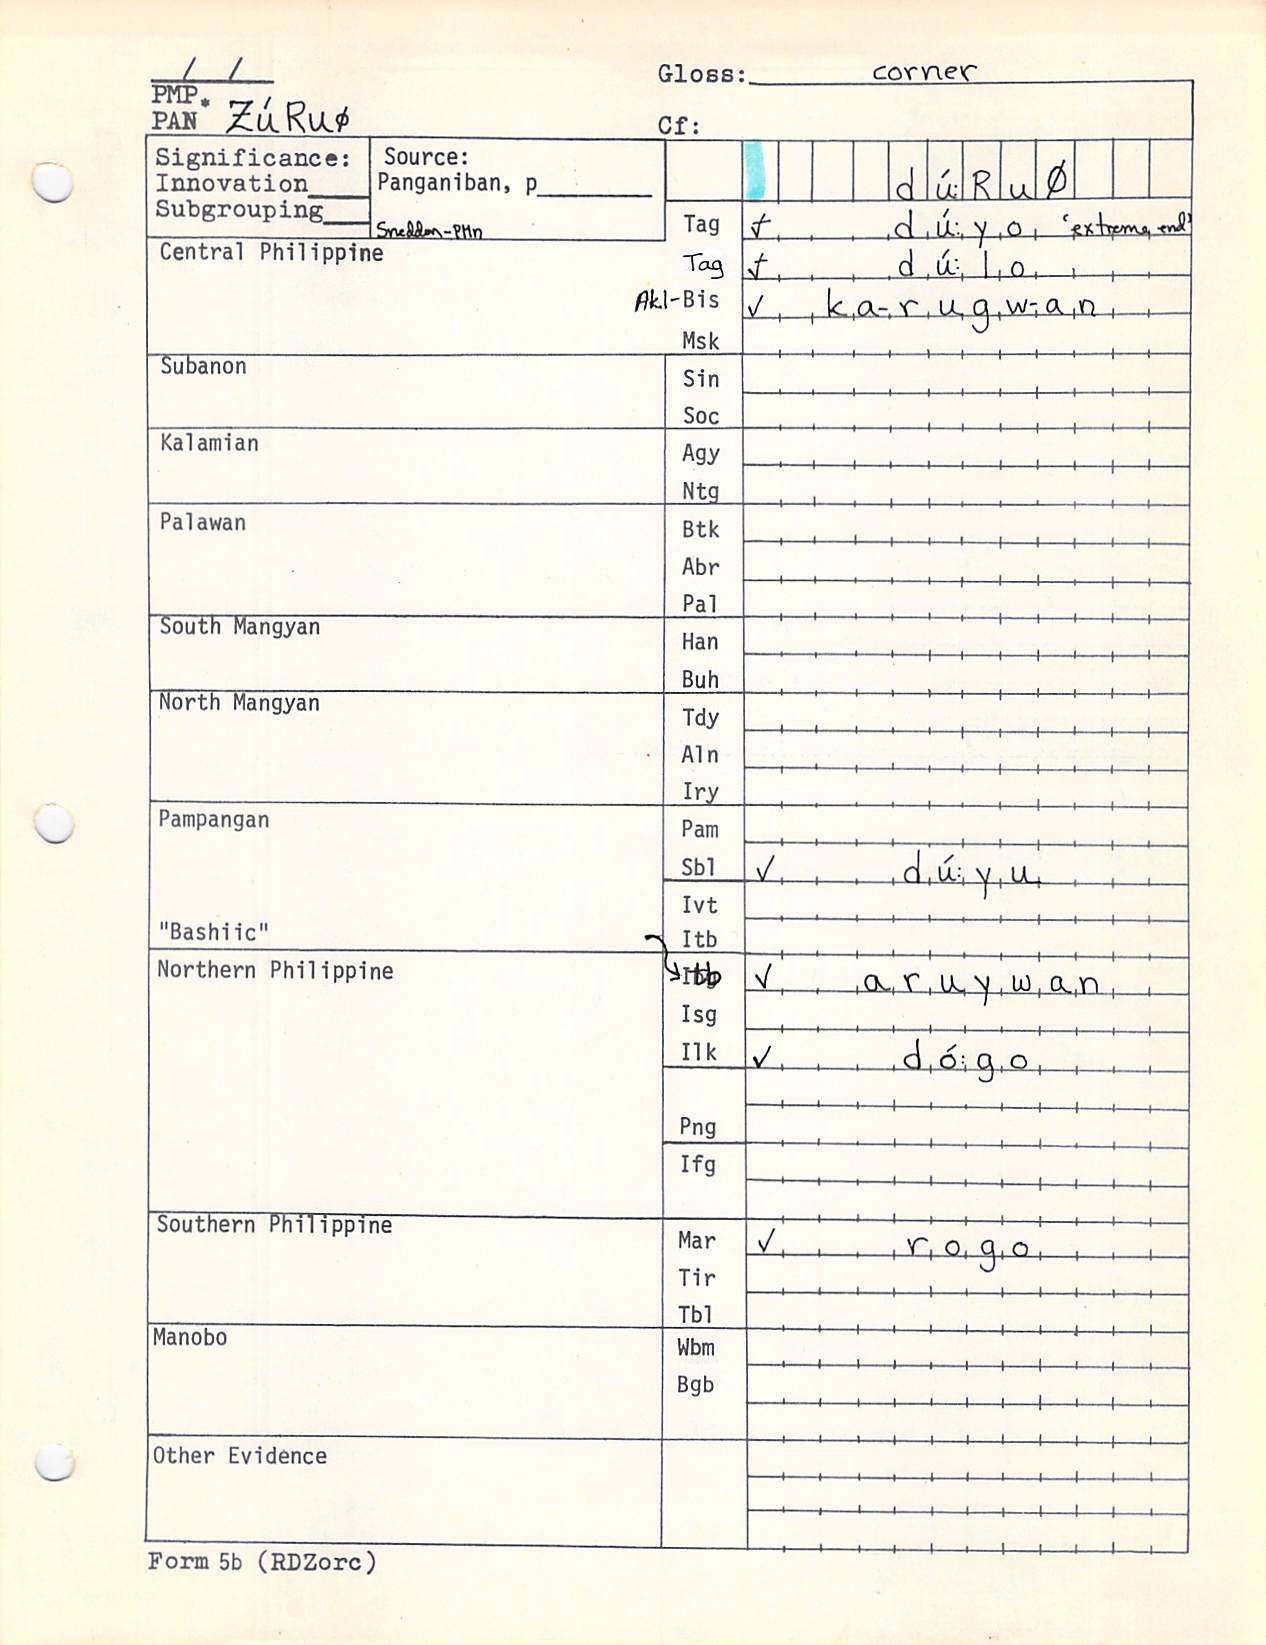 / /
Gloss: corner
PMP
PAN * ZúRuø
Cf:
Significance:
Innovation
Subgrouping
Source:
Panganiban, p
Sneddon-PMn
dú:RuØ
Tag ✓ dú:yo 'extreme end'
Central Philippine
Tag ✓ dú:lo
Akl-Bis ✓ ka-rugw-an
Msk
Subanon
Sin
Soc
Kalamian
Agy
Ntg
Palawan
Btk
Abr
Pal
South Mangyan
Han
Buh
North Mangyan
Tdy
Aln
Iry
Pampangan
Pam
Sbl ✓ dú:yu
Ivt
"Bashiic"
Itb
Northern Philippine
Itb ✓ aruywan
Isg
Ilk ✓ dó:go
Png
Ifg
Southern Philippine
Mar ✓ rogo
Tir
Tbl
Manobo
Wbm
Bgb
Other Evidence
Form 5b (RDZorc)